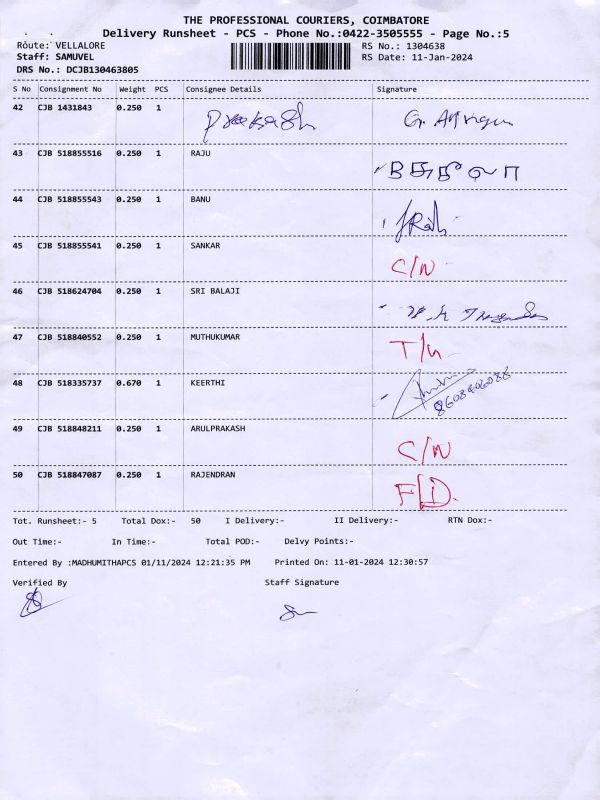 THE PROFESSIONAL COURIERS, COIMBATORE
Delivery Runsheet - PCS - Phone No.:0422-3505555 - Page No.:5
Route: VELLALORE RS No.: 1304638
Staff: SAMUVEL RS Date: 11-Jan-2024
DRS No.: DCJB130463805
S No Consignment No Weight PCS Consignee Details Signature
42 CJB 1431843 0.250 1 Prakash
43 CJB 518855516 0.250 1 RAJU
44 CJB 518855543 0.250 1 BANU
45 CJB 518855541 0.250 1 SANKAR C/N
46 CJB 518624704 0.250 1 SRI BALAJI
47 CJB 518840552 0.250 1 MUTHUKUMAR
48 CJB 518335737 0.670 1 KEERTHI
49 CJB 518848211 0.250 1 ARULPRAKASH C/N
50 CJB 518847087 0.250 1 RAJENDRAN F/D.
Tot. Runsheet:- 5 Total Dox:- 50 I Delivery:- II Delivery:- RTN Dox:-
Out Time:- In Time:- Total POD:- Delvy Points:-
Entered By :MADHUMITHAPCS 01/11/2024 12:21:35 PM Printed On: 11-01-2024 12:30:57
Verified By Staff Signature